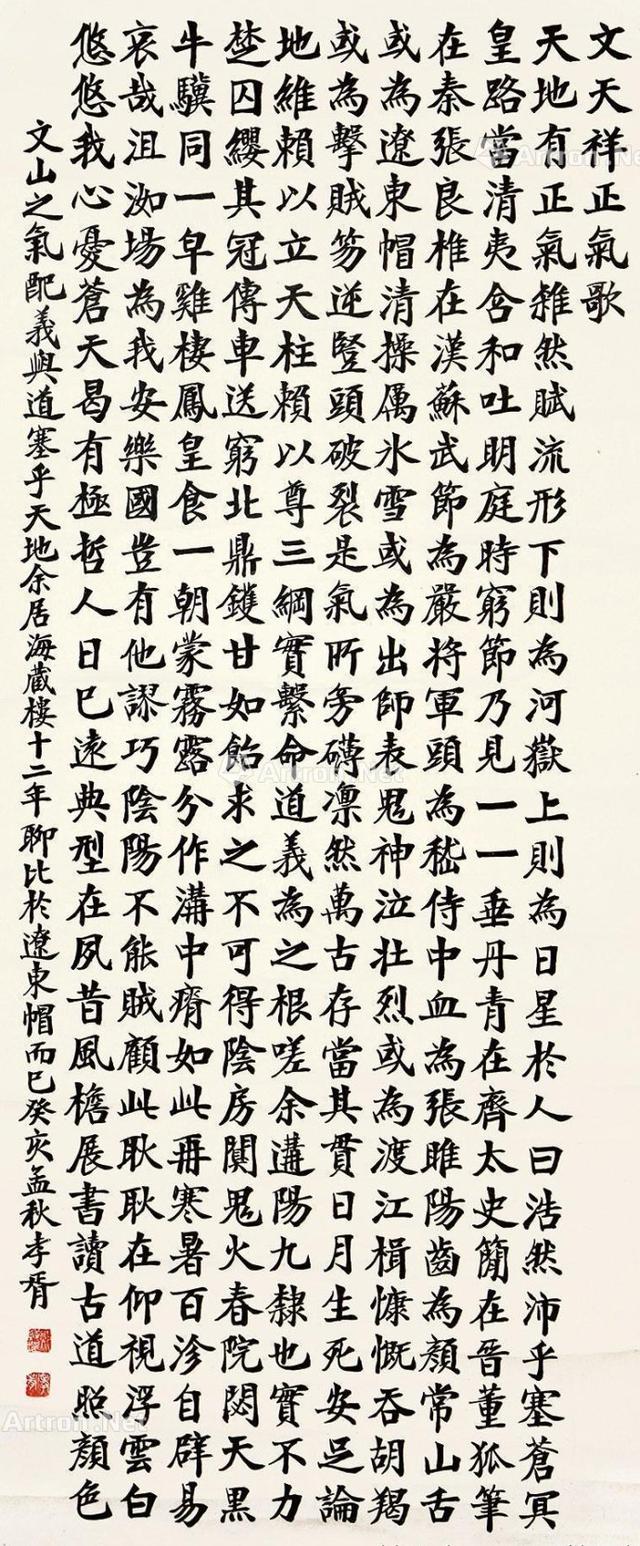 文天祥正氣歌
天地有正氣雜然賦流形下則為河嶽上則為日星於人曰浩然沛乎塞蒼冥
皇路當清夷含和吐明庭時窮節乃見一一垂丹青在齊太史簡在晉董狐筆
在秦張良椎在漢蘇武節為嚴將軍頭為嵇侍中血為張睢陽齒為顏常山舌
或為遼東帽清操厲冰雪或為出師表鬼神泣壯烈或為渡江楫慷慨吞胡羯
或為擊賊笏逆豎頭破裂是氣所旁礴凜然萬古存當其貫日月生死安足論
地維賴以立天柱賴以尊三綱實繫命道義為之根嗟余遘陽九隸也實不力
楚囚纓其冠傳車送窮北鼎鑊甘如飴求之不可得陰房闃鬼火春院閟天黑
牛驥同一皁雞棲鳳皇食一朝蒙霧露分作溝中瘠如此再寒暑百沴自辟易
哀哉沮洳場為我安樂國豈有他謬巧陰陽不能賊顧此耿耿在仰視浮雲白
悠悠我心憂蒼天曷有極哲人日已遠典型在夙昔風檐展書讀古道照顏色
文山之氣配義與道塞乎天地余居海藏樓十二年聊比於遼東帽而已癸亥孟秋孝胥
Artron.Net
Artron.Net
Artron.Net
Artron.Net